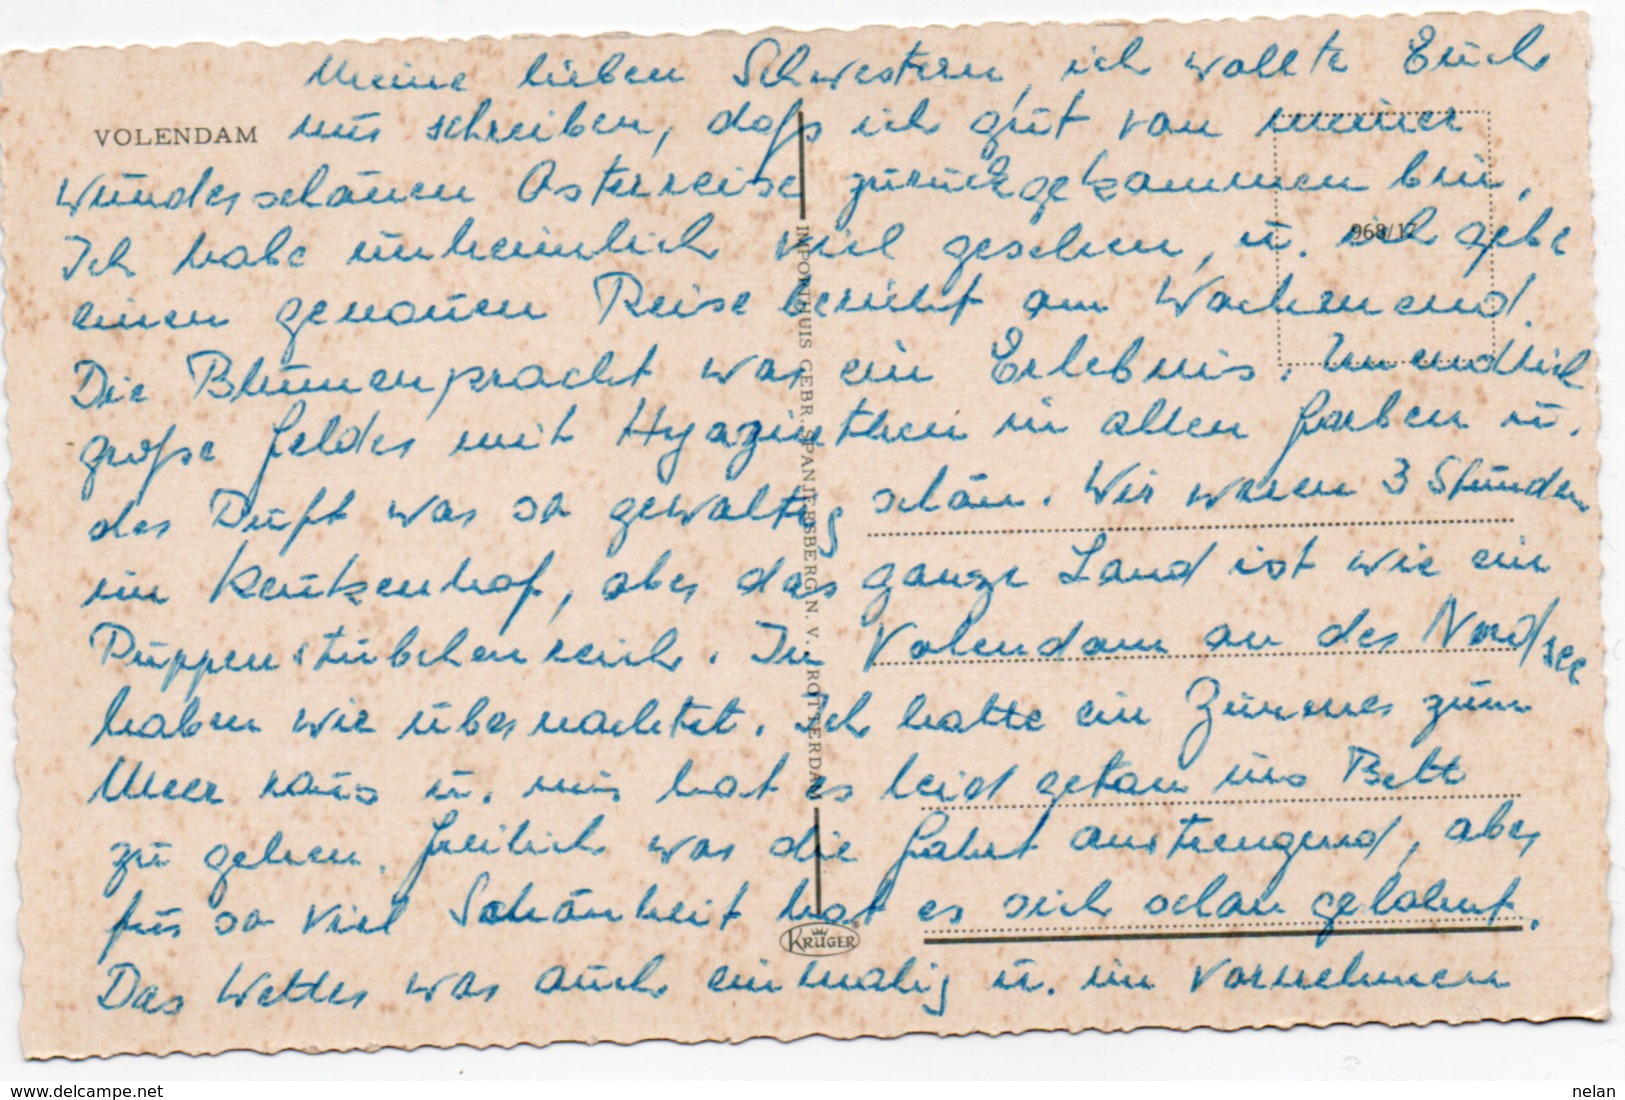 Meine lieben Schwestern, ich wollte Euch
VOLENDAM
nur schreiben, daß ich gut von meiner
wunderschönen Osterreise zurückgekommen bin.
968/17
Ich habe unheimlich viel gesehen, u. ich gebe
einen genauen Reisebericht am Wochenend.
Die Blumenpracht war ein Erlebnis. Unendlich
große Felder mit Hyazinthen in allen Farben u.
der Duft war so gewaltig schön. Wir waren 3 Stunden
im Keukenhof, aber das ganze Land ist wie ein
Puppenstübchenreich. In Volendam an der Nordsee
haben wir übernachtet. Ich hatte ein Zimmer zum
Meer raus u. mir hat es leid getan ins Bett
zu gehen. Freilich war die Fahrt anstrengend, aber
für so viel Schönheit hat es sich schon gelohnt.
Das Wetter war auch einmalig u. im Vornehmen
IMPORTHUIS GEBR. SPANJERSBERG N. V. ROTTERDAM
KRÜGER
www.delcampe.net
nelan